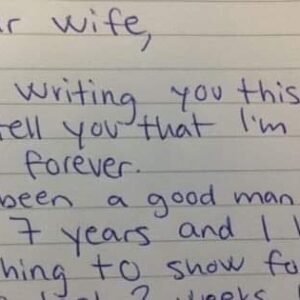 r wife,
writing you this
tell you that I'm
forever.
been a good man
7 years and I
hing to show fo
2 weeks